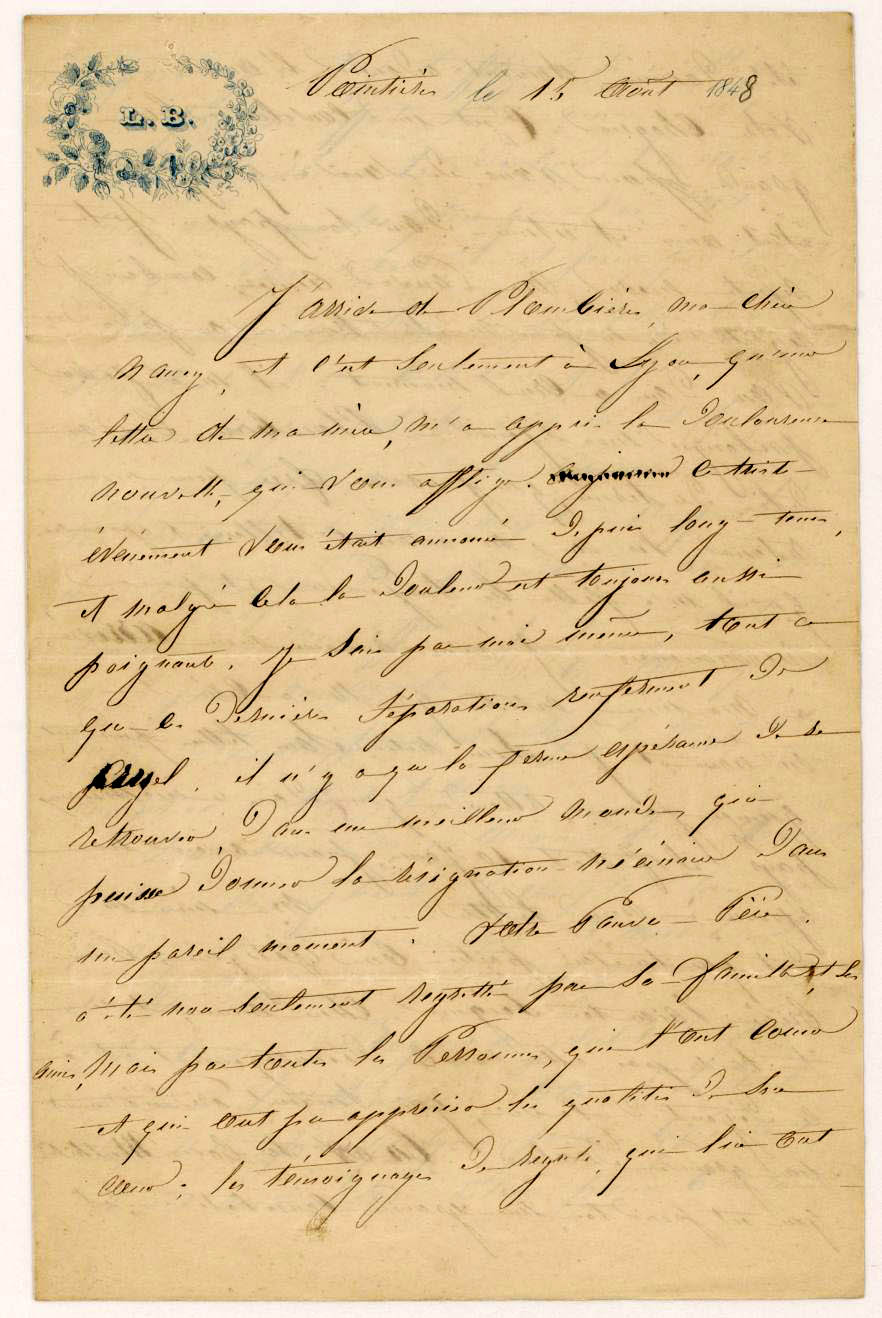 L. B.
Pointières le 15 Août 1848
J'arrive de Plombières, ma chère
Nancy, et c'est seulement à Lyon, qu'une
lettre de ma mère, m'a appris la douloureuse
nouvelle, qui vous afflige. ce triste
événement vous était annoncé depuis long-tems,
et malgré cela la douleur est toujours aussi
poignante. je sais par moi même, tout ce
que ces dernières séparations renferment de
cruel. il n'y a que la ferme espérance de se
retrouver dans un meilleur monde, qui
puisse donner la résignation nécéssaire dans
un pareil moment. votre Pauvre Père.
a été non seulement regretté par sa famille et ses
amis, mais par toutes les Personnes, qui l'ont connu
et qui ont pu apprécier les qualités de son
cœur; les témoignages de regrets, qui lui ont